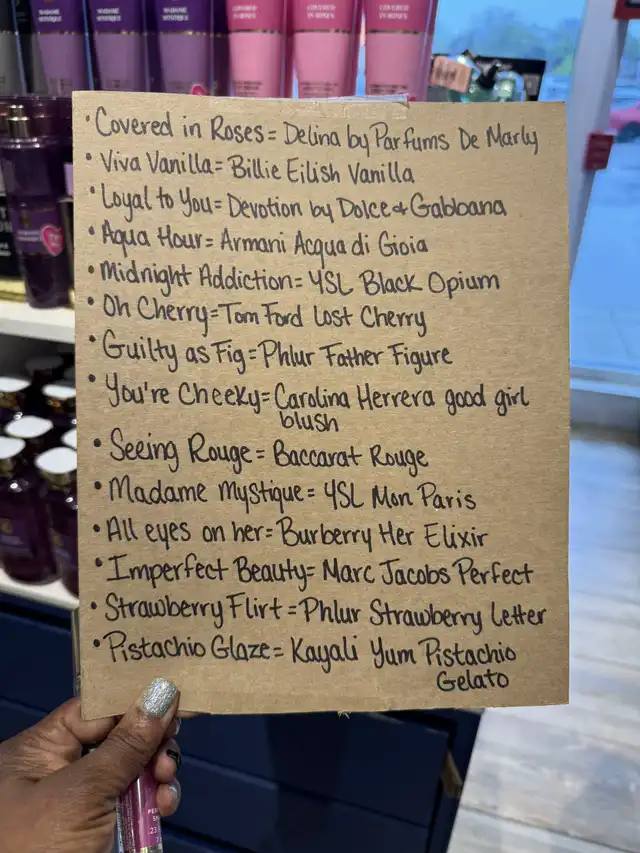 MADAME MYSTIQUE
MADAME MYSTIQUE
MADAME MYSTIQUE
COVERED IN ROSES
COVERED IN ROSES
COVERED IN ROSES
• Covered in Roses = Delina by Parfums De Marly
• Viva Vanilla = Billie Eilish Vanilla
• Loyal to You = Devotion by Dolce & Gabbana
• Aqua Hour = Armani Acqua di Gioia
• Midnight Addiction = YSL Black Opium
• Oh Cherry = Tom Ford Lost Cherry
• Guilty as Fig = Phlur Father Figure
• You're Cheeky = Carolina Herrera good girl
blush
• Seeing Rouge = Baccarat Rouge
• Madame Mystique = YSL Mon Paris
• All eyes on her = Burberry Her Elixir
• Imperfect Beauty = Marc Jacobs Perfect
• Strawberry Flirt = Phlur Strawberry Letter
• Pistachio Glaze = Kayali Yum Pistachio
Gelato